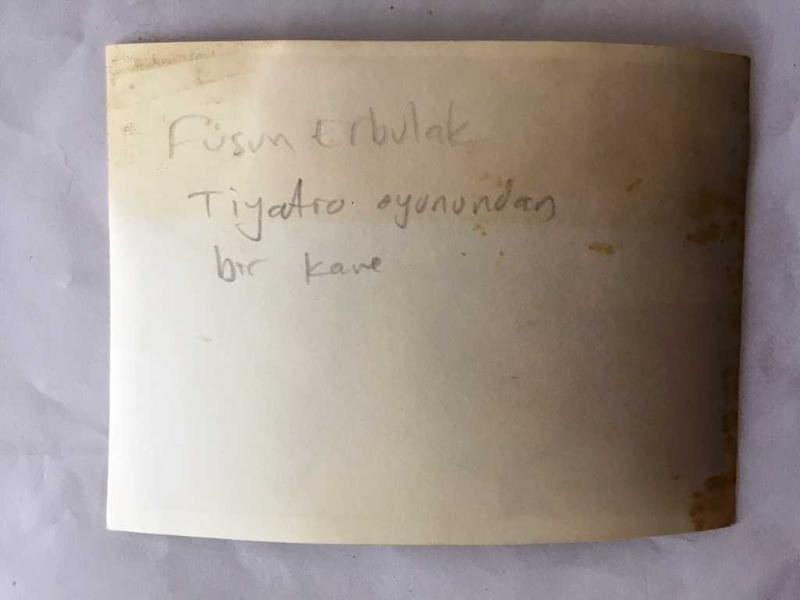 Füsun Erbulak
Tiyatro oyunundan
bir kare